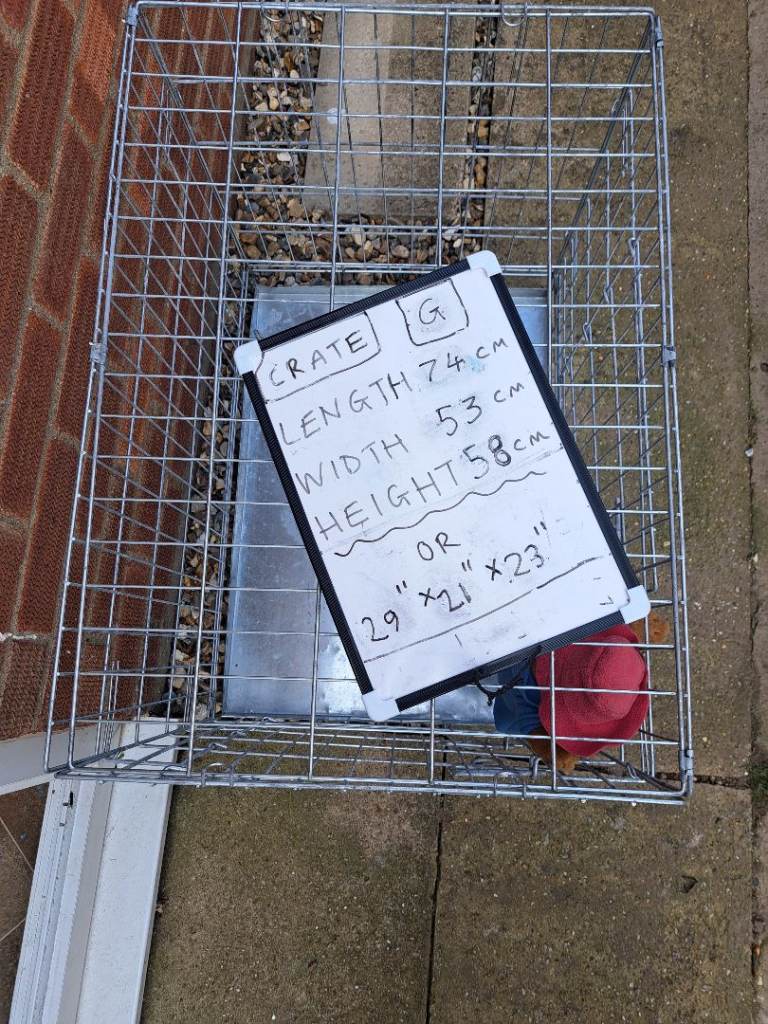 CRATE G
LENGTH 74 CM
WIDTH 53 CM
HEIGHT 58 CM
OR
29" x 21" x 23"